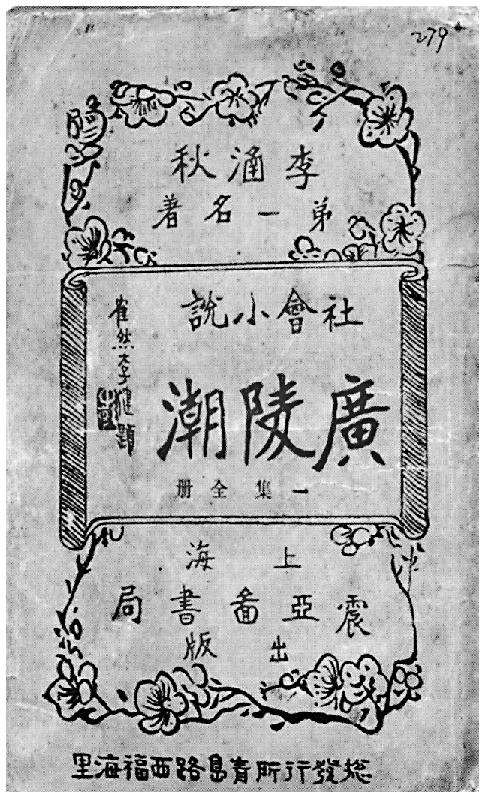 279
李涵秋
弟一名著
社會小說
廣陵潮
一集全册
上海
震亞啚書局
出版
總發行所青島路西福海里